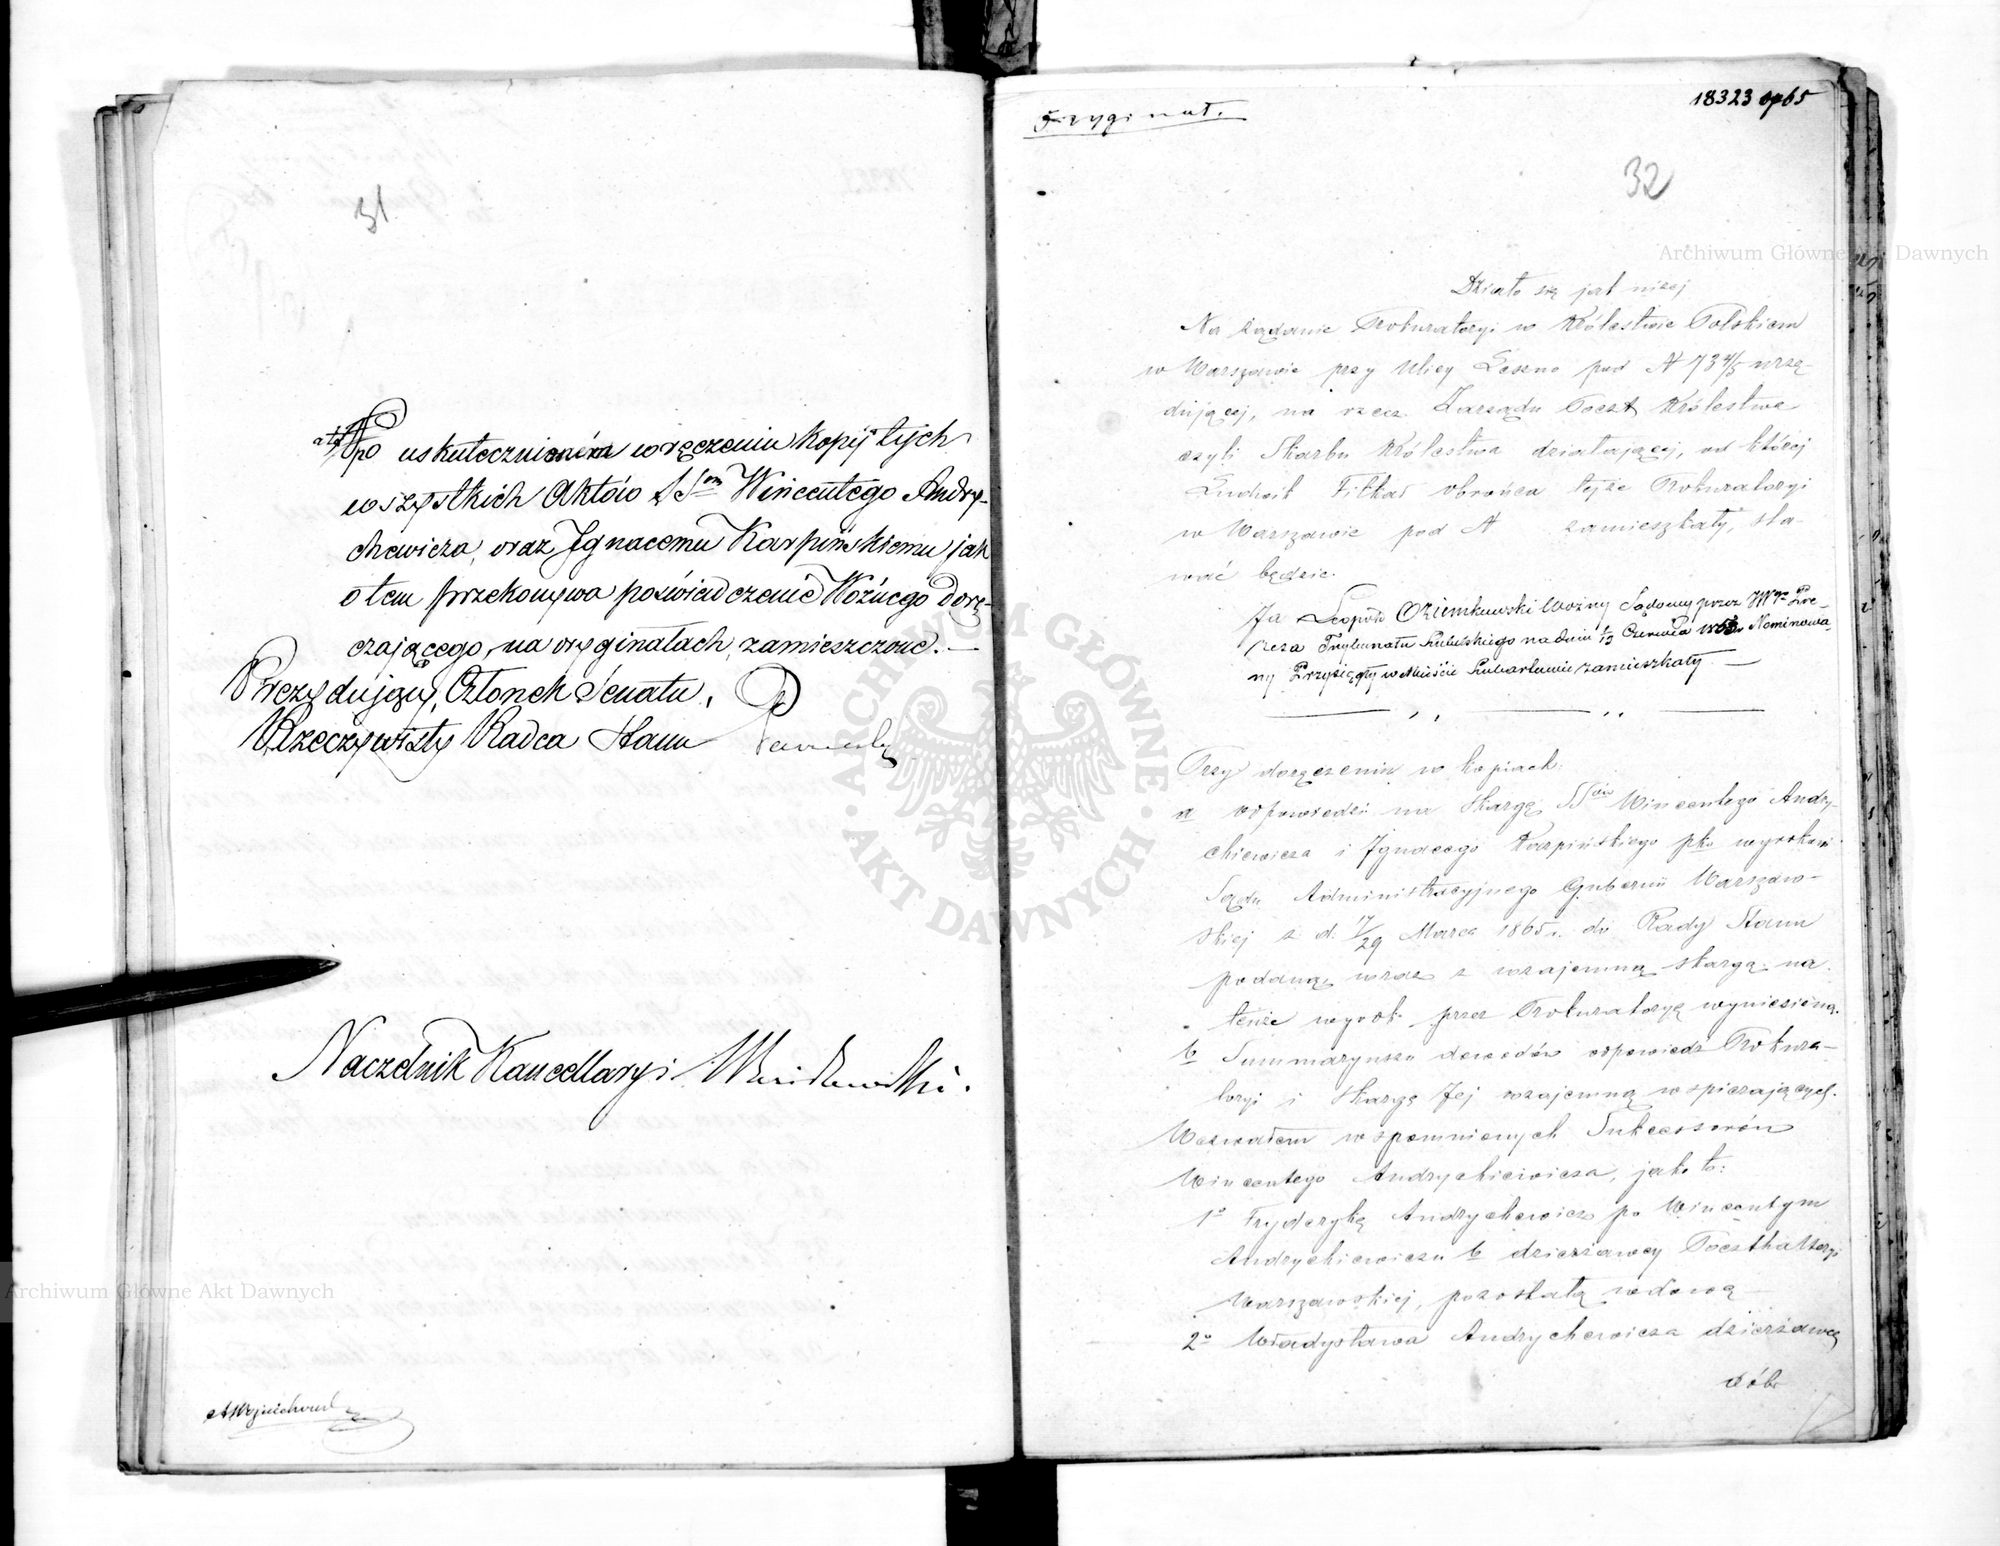 31
a też po uskutecznioném wręczeniu kopij tych
wszystkich Aktów SSom Wincentego Andry-
chewicza, oraz Ignacemu Karpińskiemu jak
o tem przekonywa poświadczenie Woźnego dorę-
czającego, na oryginałach, zamieszczone. —
Prezydujący, Członek Senatu,
Rzeczywisty Radca Stanu
Naczelnik Kancellaryi
AWojciechowski
Oryginał.
18323 op65
32
Działo się jak niżej
Na żądanie Prokuratoryi w Królestwie Polskiem
w Warszawie przy Ulicy Leszno pod N 734/5 urzę-
dującej, na rzecz Zarządu Poczt Królestwa
czyli Skarbu Królestwa działającej, od której
Ludwik Filkał obrońca tejże Prokuratoryi
w Warszawie pod N zamieszkały, sta-
wać będzie.
Ja Leopold Oziemkowski Woźny Sądowy przez JWgo Pre-
zesa Trybunału Lubelskiego na dniu 1/13 Czerwca Nominowa-
ny Przysięgły w Mieście Lubartowie zamieszkały. —
Przy doręczeniu w kopiach:
a odpowiedzi na skargę SSów Wincentego Andry-
chiewicza i Ignacego Karpińskiego pko wyrokowi
Sądu Administracyjnego Gubernii Warszaw-
skiej z d. 17/29 Marca 1865 r. do Rady Stanu
podaną, wraz z wzajemną skargą na
tenże wyrok przez Prokuratoryą wyniesioną.
b Summaryusza dowodów odpowiedź Prokura-
toryi i skargę Jej wzajemną wspierających.
Wezwałem wspomnionych Sukcessorów
Wincentego Andrychiewicza, jako to:
1o Fryderykę Andrychewicz po Wincentym
Andrychiewiczu b dzierżawcy Poczthalteryi
Warszawskiej, pozostałą wdową —
2o Władysława Andrychewicza dzierżawcę
dóbr
ARCHIWUM GŁÓWNE AKT DAWNYCH
Archiwum Główne Akt Dawnych
Archiwum Główne Akt Dawnych